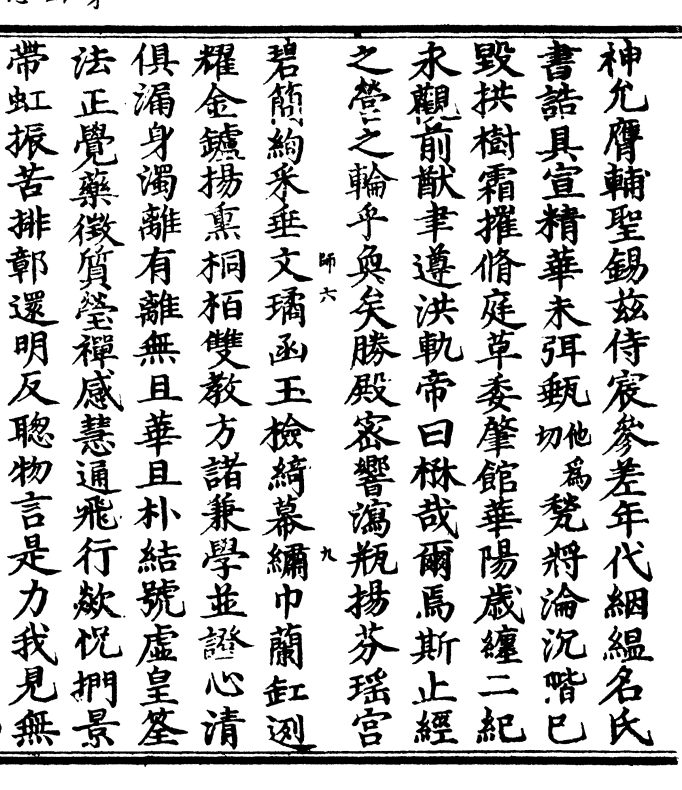 神允膺輔聖錫茲侍宸參差年代絪縕名氏
書誥具宣精華未弭甀他為切甃將淪沉階已
毀拱樹霜摧脩庭草委肇館華陽歲纏二紀
永觀前猷聿遵洪軌帝曰楙哉爾焉斯止經
之營之輪乎奐矣勝殿密響瀉瓶揚芬瑶宮
師六 九
碧簡絢采垂文璚函玉檢綺幕繡巾蘭缸迾
耀金鑪揚熏桐栢雙教方諸兼學並證心清
俱漏身濁離有離無且華且朴結號虛皇筌
法正覺藥徵質瑩禪感慧通飛行欻怳捫景
帶虹振苦排鄣還明反聰物言是力我見無